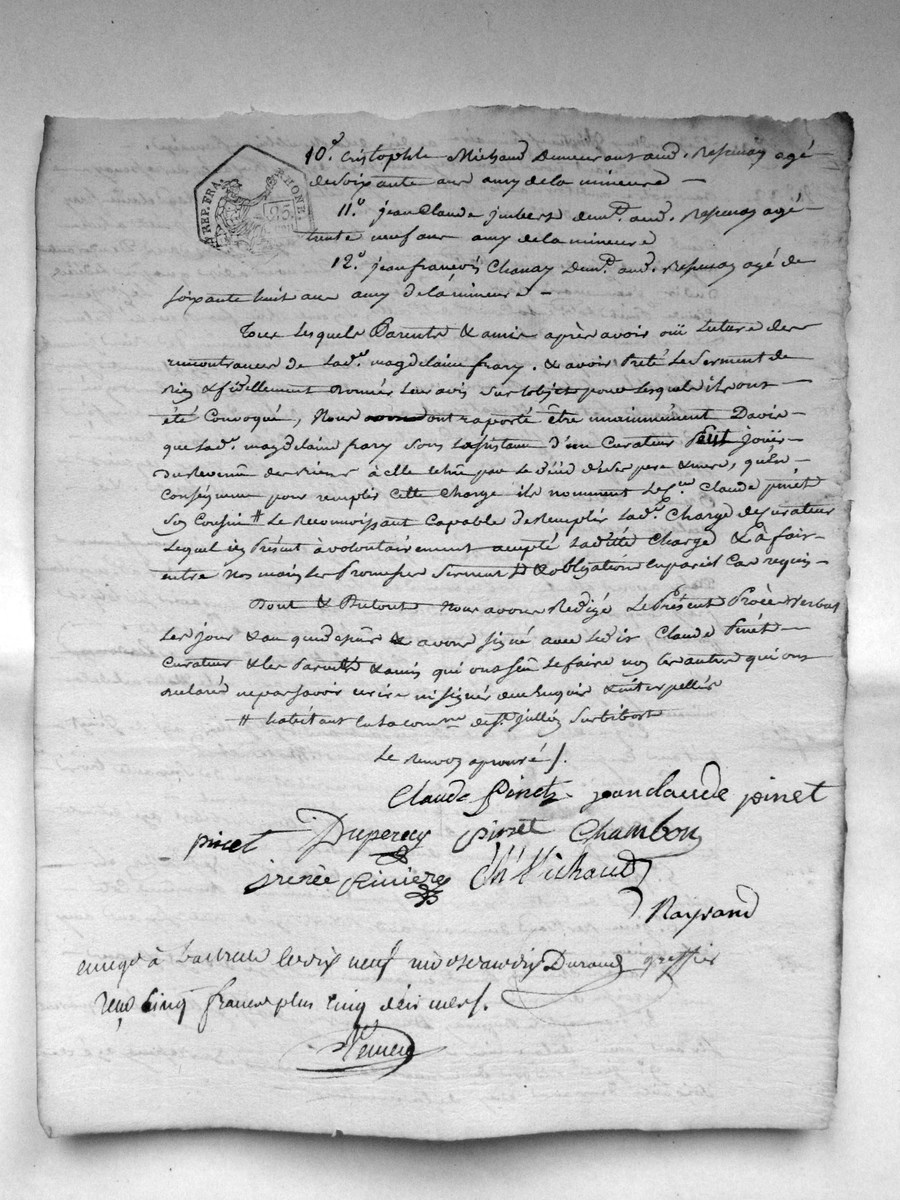 REP. FRA. RHONE. 25.
10.° Cristophle Michaud demeurant aud. Ressenas agé
de soixante ans amy de la mineure —
11.° jean Claude jmbert dem.t aud. Ressenas agé
trente neuf ans amy de la mineure
12.° jean françois Chanay dem.t aud. Ressenas agé de
soixante huit ans amy de la mineure —
Tous lesquels Parents & amis après avoir oüi lecture des
remontrances de lad.e magdelaine frary, & avoir Preté le serment de
bien & fidellement donner leur avis sur l'objet pour lesquels ils ont —
été Convoqué, Nous ont raporté être unanimement D'avis —
que lad.e magdelaine frary sous l'assistance d'un Curateur Peut joüir
du Revenu des biens à elle échu par le décès de ses pere & mere, qu'En —
Conséquence pour remplir Cette Charge ils nomment le S.r Claude pinet
Son Cousin # Le Reconnoissant Capable de Remplir lad.e Charge de Curateur
Lequel icy Présent à volontairement accepté Laditte Charge & à fait —
entre Nos mains les Promesses Serment & obligation en pareil Cas requis —
Dont & Du tout Nous avons Rédigé Le Présent Procès Verbal
Les jour & an que dessus & avons signé avec ledit Claude Pinet —
Curateur & les Parents & amis qui ont scu le faire non les autres qui ont
déclaré ne pas savoir écrire ni signer de ce enquis & interpellés
# habitant en la comm.ne de S.t jullien sur bibost
Le renvoy aprouvé /.
Claude Pinet jean claude pinet
pinet Duperay pinet Chambon
jrenée Riviere Ch Michaud
Raynand
enregé à le dix neuf an dix Durand greffier
reçu Cinq francs plus Cinq décimes /.